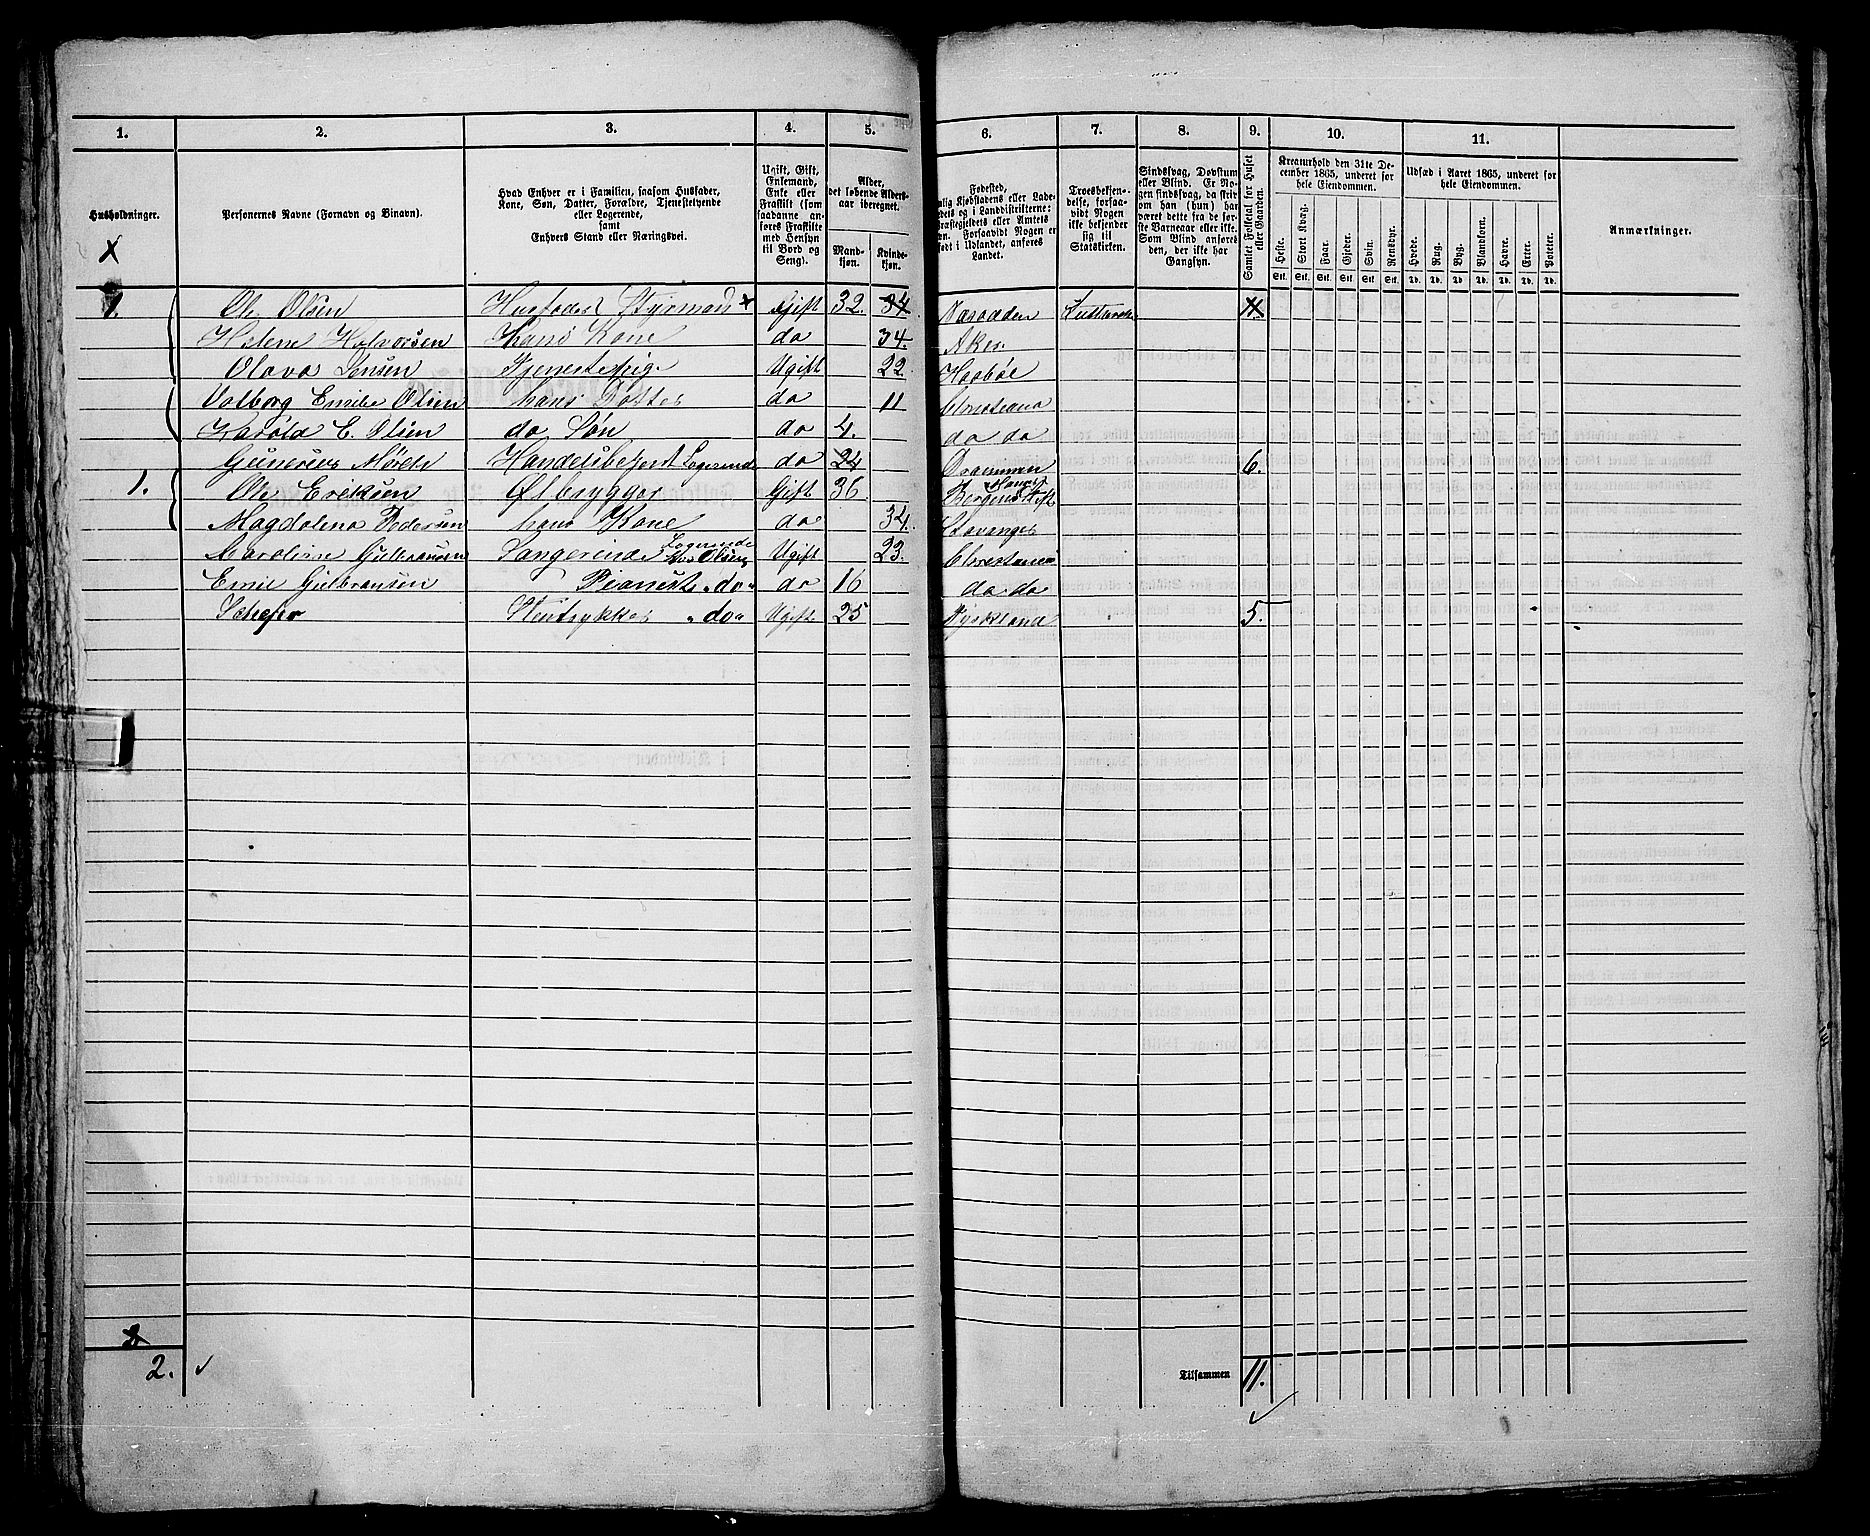 1. 2. 3. 4. 5. 6. 7. 8. 9. 10. 11.
Husholdninger.
Personernes Navne (Fornavn og Binavn).
Hvad Enhver er i Familien, saasom Husfader,
Kone, Søn, Datter, Forældre, Tjenestetyende
eller Logerende,
samt
Enhvers Stand eller Næringsvei.
Ugift, Gift,
Enkemand,
Enke eller
Fraskilt (som
saadanne an-
føres Fraskilte
med Hensyn
til Bord og
Seng).
Alder,
det løbende Alders-
aar iberegnet.
Mand-
kjøn.
Kvinde-
kjøn.
Fødested,
Forsaavidt Nogen er
født i Udlandet, anføres
Landet.
Troesbekjen-
delse, forsaa-
vidt Nogen
ikke bekjender
sig til
Statskirken.
Sindssvag, Døvstum
eller Blind. Er No-
gen sindssvag, da skriv
om han (hun) har
været dette fra de før-
ste Barneaar eller ikke.
Som Blind anføres
den, der ikke har
Gangsyn.
Samlet Folketal for Huset
eller Gaarden.
Kreaturhold den 31te De-
cember 1865, underet for
hele Eiendommen.
Heste. Stort Kvæg. Faar. Gjeder. Svin. Rensdyr.
Stk. Stk. Stk. Stk. Stk. Stk.
Udsæd i Aaret 1865, underet for
hele Eiendommen.
Hvede. Rug. Byg. Blandkorn. Havre. Erter. Poteter.
Td. Td. Td. Td. Td. Td. Td.
Anmærkninger.
1. Ole Olsen Husfader Styrmand x Gift 32. 34 Næsodden 11
Helene Halvorsen Hans Kone do 34. Aker
Olava Jensen Tjenestepige Ugift 22. Haabøl
Valborg Emilie Olsen hans Datter do 11 Christiania
Harald E. Olsen do Søn do 4. do do
Gunerius Handelsbetjent Logerende do 24 Drammen 6.
1. Ole Eriksen Ølbrygger Gift 36 Bergens Stift
Magdalena Pedersen hans Kone do 34. Stavanger
Caroline Gulbransen Sangerinde Logerende hos Olsen Ugift 23. Christiania
Emil Gulbransen Pianist "do" do 16 do do
"do" Ugift 25 Tyskland 5.
2.
Tilsammen 11.